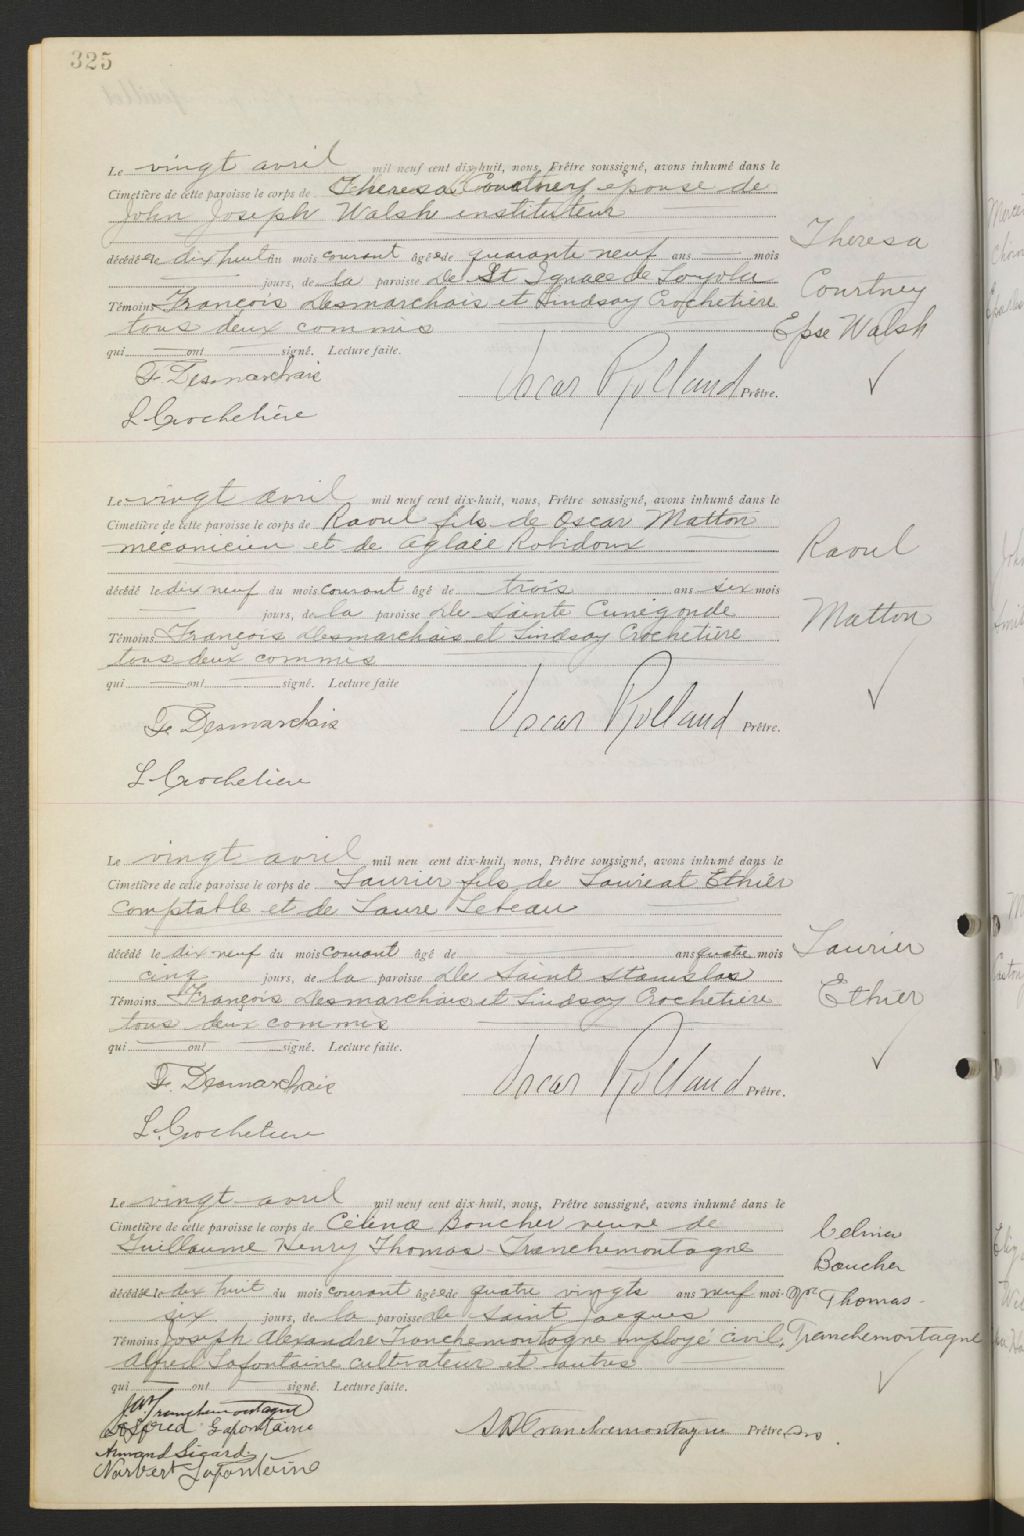 325
Le vingt avril mil neuf cent dix-huit, nous, Prêtre soussigné, avons inhumé dans le
Cimetière de cette paroisse le corps de Theresa Courtney epouse de
John Joseph Walsh instituteur
décédée le dix huit du mois courant âgée de quarante neuf ans mois
jours, de la paroisse de St Ignace de Loyola
Témoins François Desmarchais et Lindsay Crochetière
tous deux commis
qui ont signé. Lecture faite.
F. Desmarchais
L. Crochetière
Oscar Rolland Prêtre.
Theresa
Courtney
Epse Walsh
Le vingt avril mil neuf cent dix-huit, nous, Prêtre soussigné, avons inhumé dans le
Cimetière de cette paroisse le corps de Raoul fils de Oscar Matton
mécanicien et de Aglaée Robidoux
décédé le dix neuf du mois courant âgé de trois ans six mois
jours, de la paroisse de Sainte Cunégonde
Témoins François Desmarchais et Lindsay Crochetière
tous deux commis
qui ont signé. Lecture faite
F. Desmarchais
L. Crochetiere
Oscar Rolland Prêtre.
Raoul
Matton
Le vingt avril mil neu cent dix-huit, nous, Prêtre soussigné, avons inhumé dans le
Cimetière de cette paroisse le corps de Laurier fils de Lauréat Ethier
comptable et de Laure Lebeau
décédé le dix-neuf du mois courant âgé de ans quatre mois
cinq jours, de la paroisse de Saint Stanislas
Témoins François Desmarchais et Lindsay Crochetière
tous deux commis
qui ont signé. Lecture faite.
F. Desmarchais
L. Crochetiere
Oscar Rolland Prêtre.
Laurier
Ethier
Le vingt avril mil neuf cent dix-huit, nous, Prêtre soussigné, avons inhumé dans le
Cimetière de cette paroisse le corps de Célina Boucher veuve de
Guillaume Henry Thomas-Tranchemontagne
décédée le dix huit du mois courant âgée de quatre vingts ans neuf moi-
six jours, de la paroisse de Saint Jacques
Témoins Joseph Alexandre Tranchemontagne employé civil,
Alfred Lafontaine cultivateur et autres
qui ont signé. Lecture faite.
Tranchemontagne
Alfred Lafontaine
Armand Sicard
Norbert Lafontaine
Tranchemontagne Prêtre
Celina
Boucher
Thomas-
Tranchemontagne